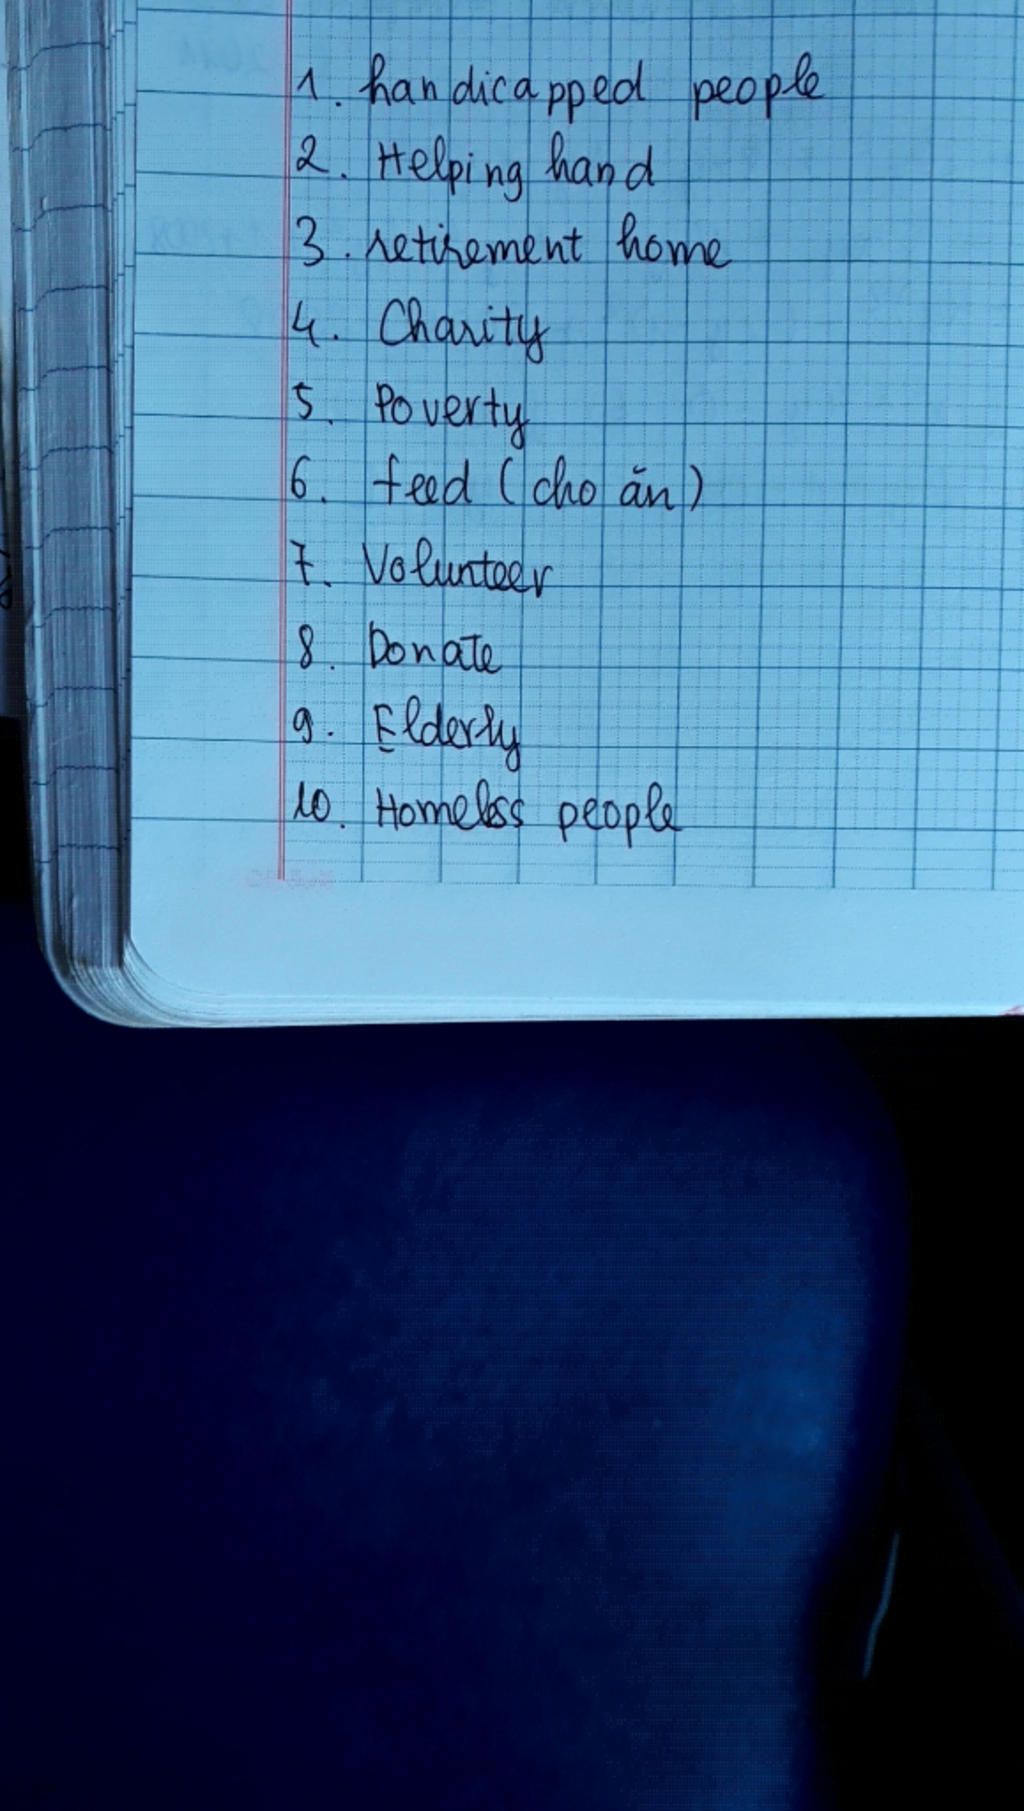 1. handicapped people
2. Helping hand
3. retirement home
4. Charity
5. Poverty
6. feed (cho ăn)
7. Volunteer
8. Donate
9. Elderly
10. Homeless people